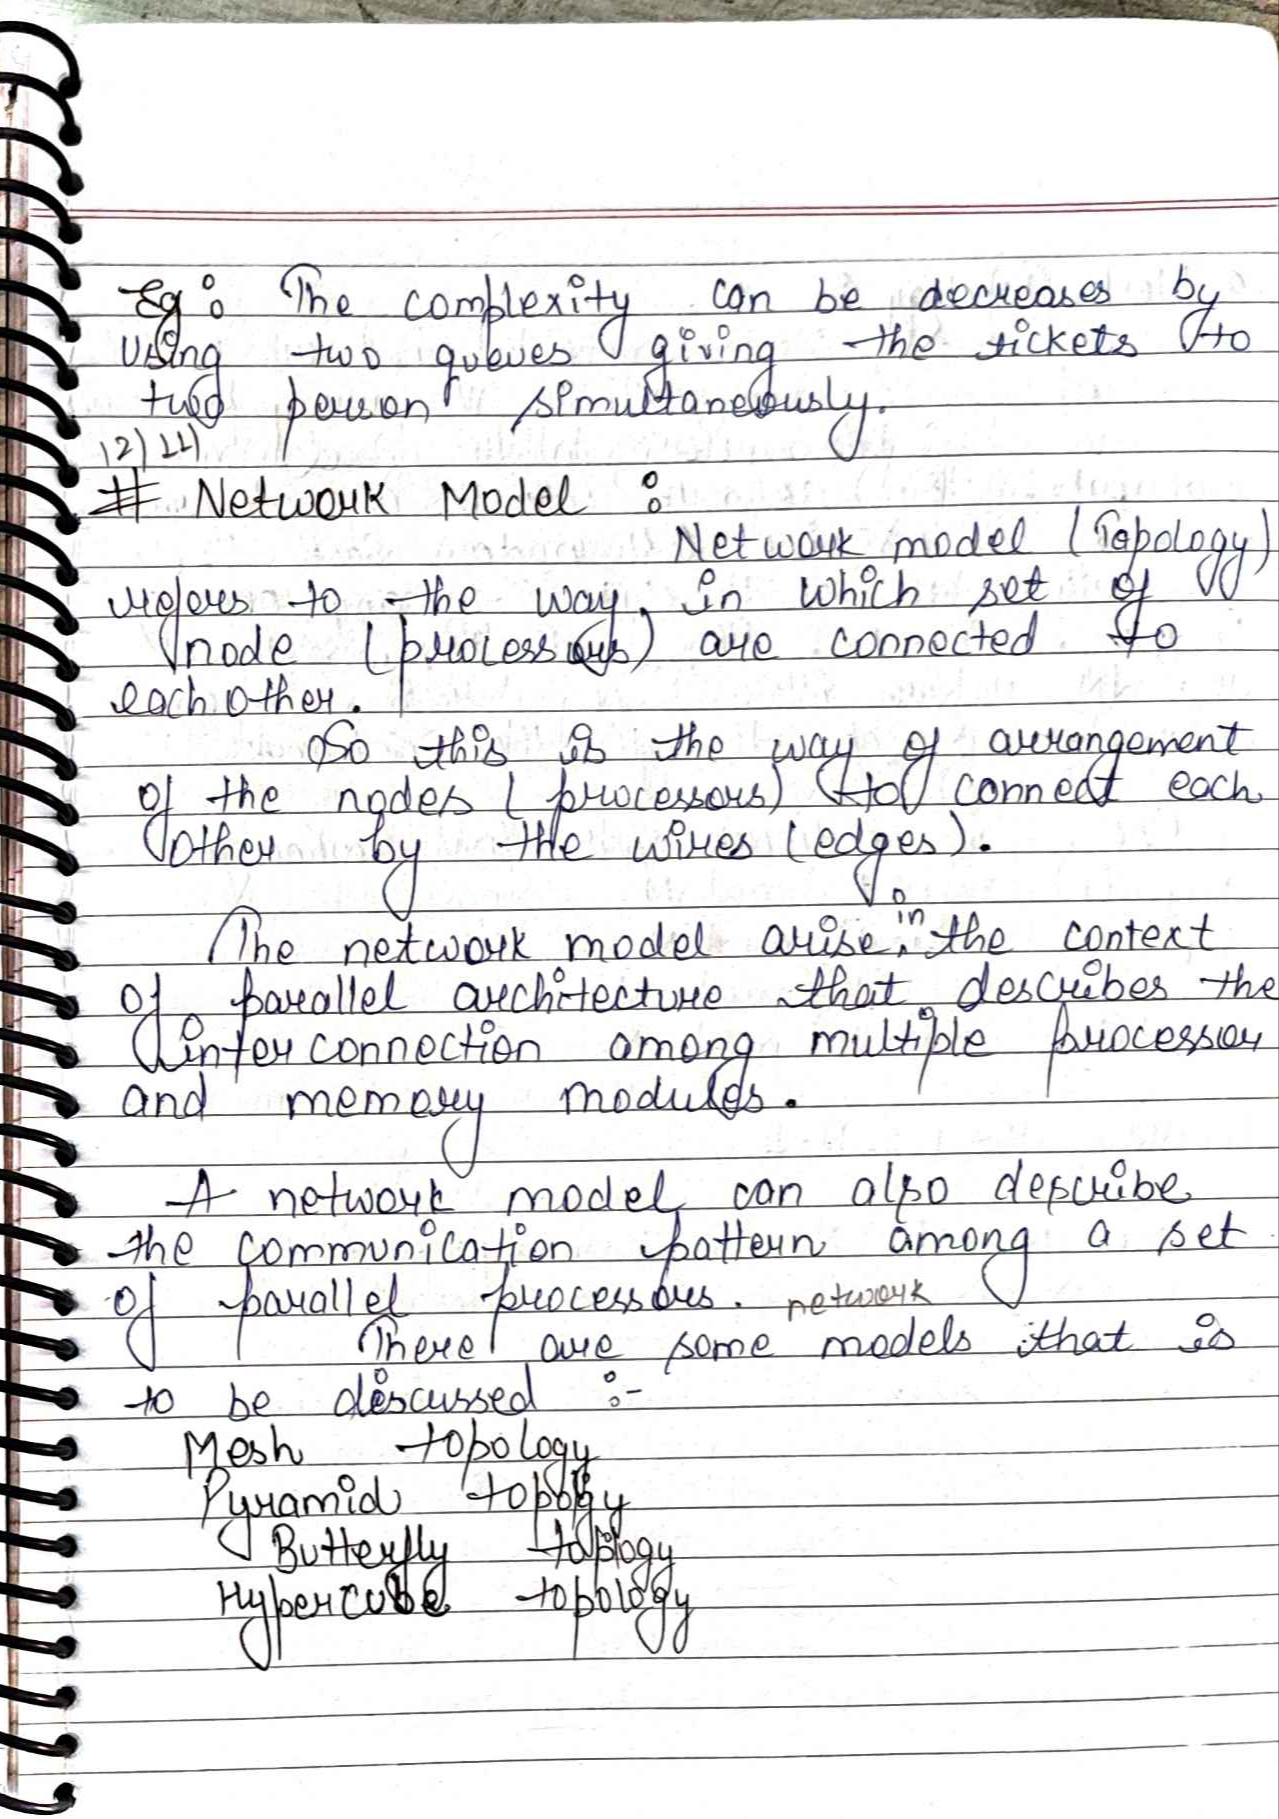 Eg : The complexity can be decreases by
using two queues giving the tickets to
two person simultaneously.
12/11/
# Network Model :
Network model (Topology)
refers to the way, in which set of
node (processors) are connected to
each other.
So this is the way of arrangement
of the nodes (processors) to connect each
other by the wires (edges).
The network model arise in the context
of parallel architecture that describes the
interconnection among multiple processor
and memory modules.
A network model can also describe
the communication pattern among a set
of parallel processors.
There are some network models that is
to be discussed :-
Mesh topology
Pyramid topolgy
Butterfly toplogy
Hypercube topology